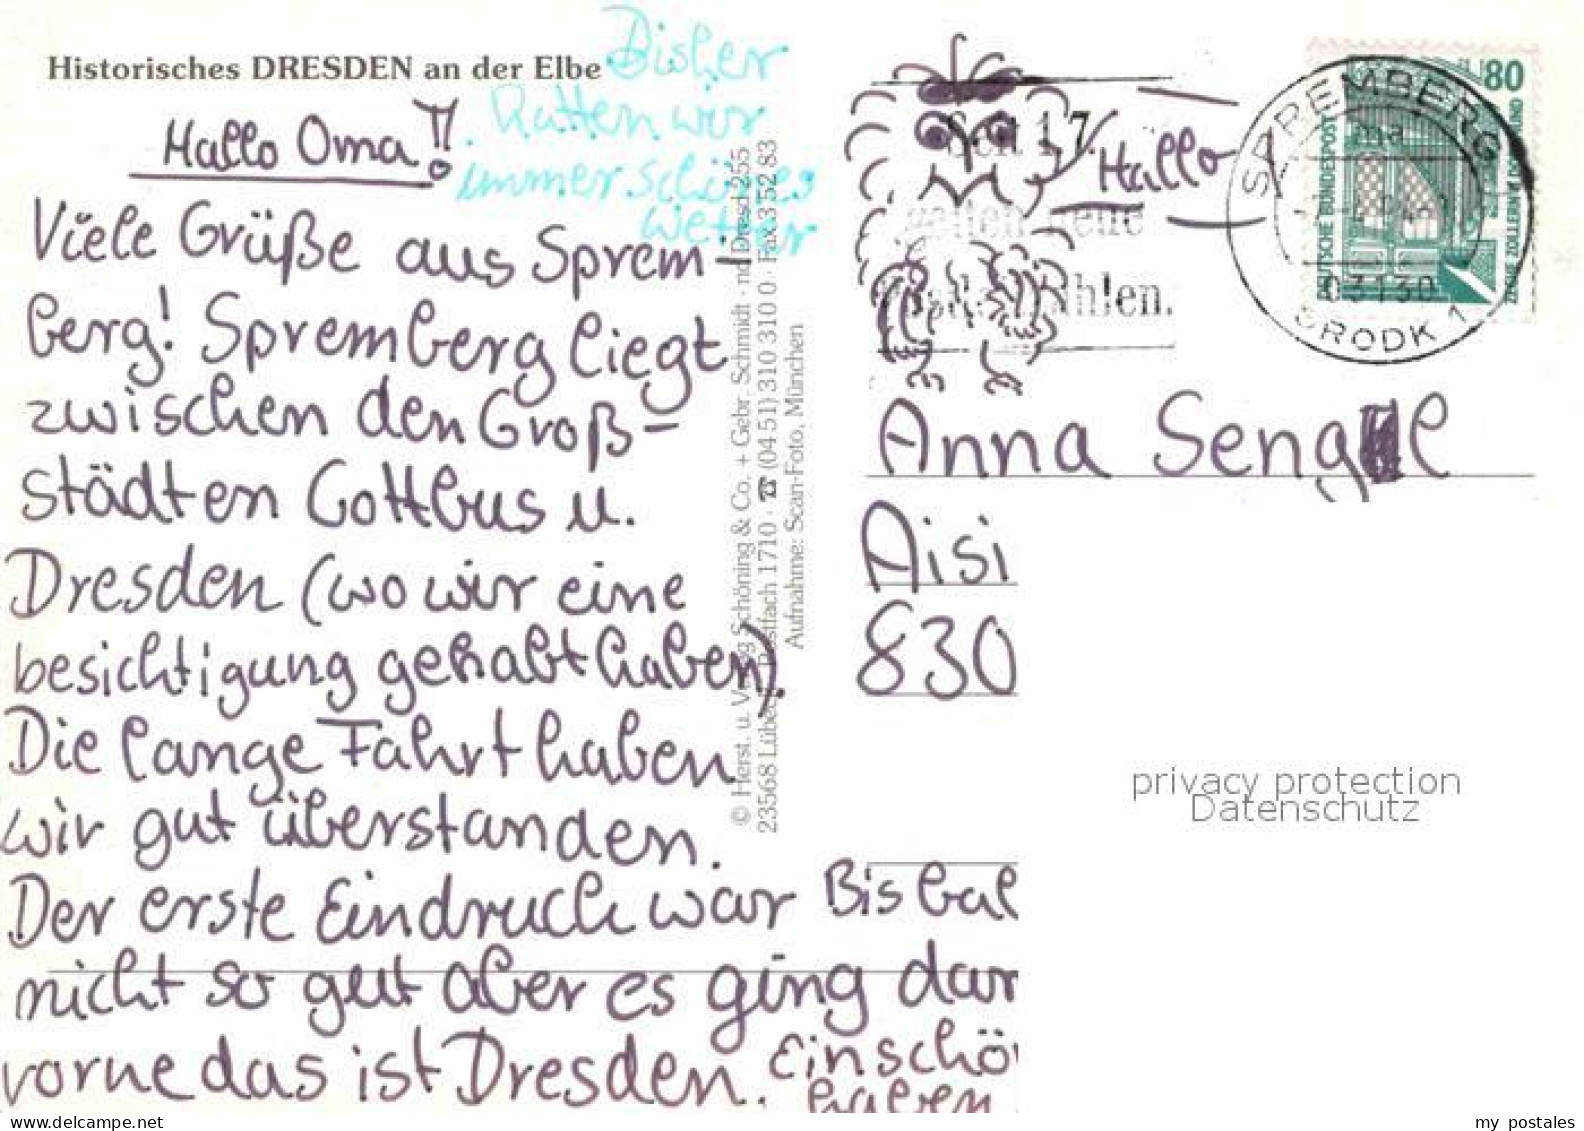 Historisches DRESDEN an der Elbe
Bisher
hatten wir
immer schönes
Wetter
Hallo Oma!!
Viele Grüße aus Sprem-
berg! Spremberg liegt
zwischen den Groß-
städten Cottbus u.
Dresden (wo wir eine
besichtigung gehabt haben).
Die lange Fahrt haben
wir gut überstanden.
Der erste Eindruck war
nicht so gut aber es ging dan
vorne das ist Dresden.
Bis bal
Einschö
haben
© Herst. u. Verlag Schöning & Co. + Gebr. Schmidt · nd Dresd 255
23568 Lübeck · Postfach 1710 · ☎ (04 51) 310 310 0 · Fax 3 352 83
Aufnahme: Scan-Foto, München
Seit 1.7.
gelten neue
Postleitzahlen.
Hallo
SPREMBERG
03130
BRODK 1
80
DEUTSCHE BUNDESPOST
ZECHE ZOLLERN II DORTMUND
Anna Sengl
Aisi
830
privacy protection
Datenschutz
my postales